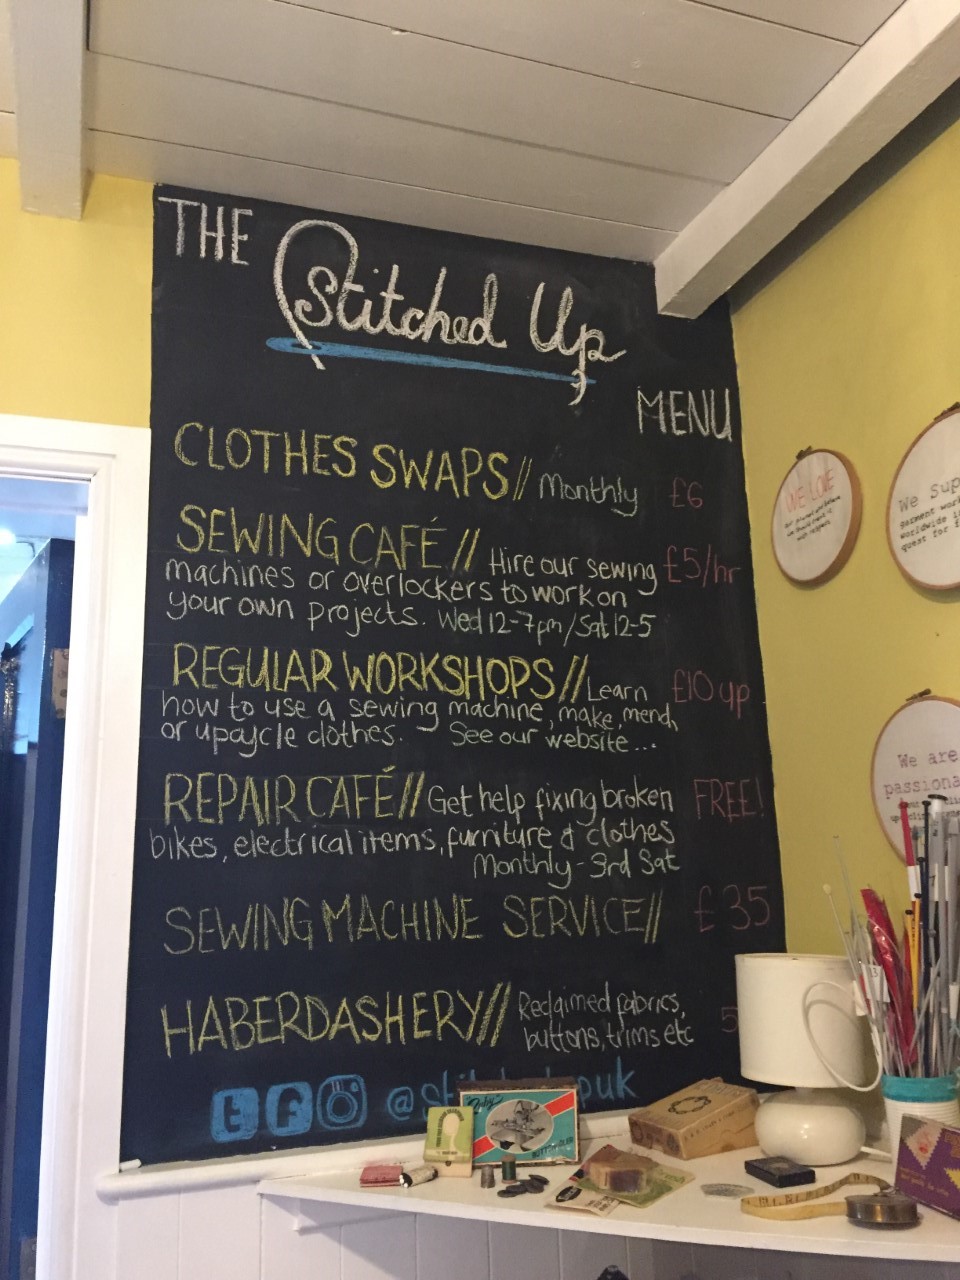 THE
Stitched Up
MENU
CLOTHES SWAPS// Monthly £6
SEWING CAFÉ // Hire our sewing £5/hr
machines or overlockers to work on
your own projects. Wed 12-7pm/Sat 12-5
REGULAR WORKSHOPS// Learn £10 up
how to use a sewing machine, make, mend,
or upcycle clothes. See our website...
REPAIR CAFÉ// Get help fixing broken FREE!
bikes, electrical items, furniture & clothes
Monthly - 3rd Sat
SEWING MACHINE SERVICE// £35
HABERDASHERY// Reclaimed fabrics,
buttons, trims etc
WE LOVE
We Sup
garment work
worldwide i
quest for f
We are
passiona